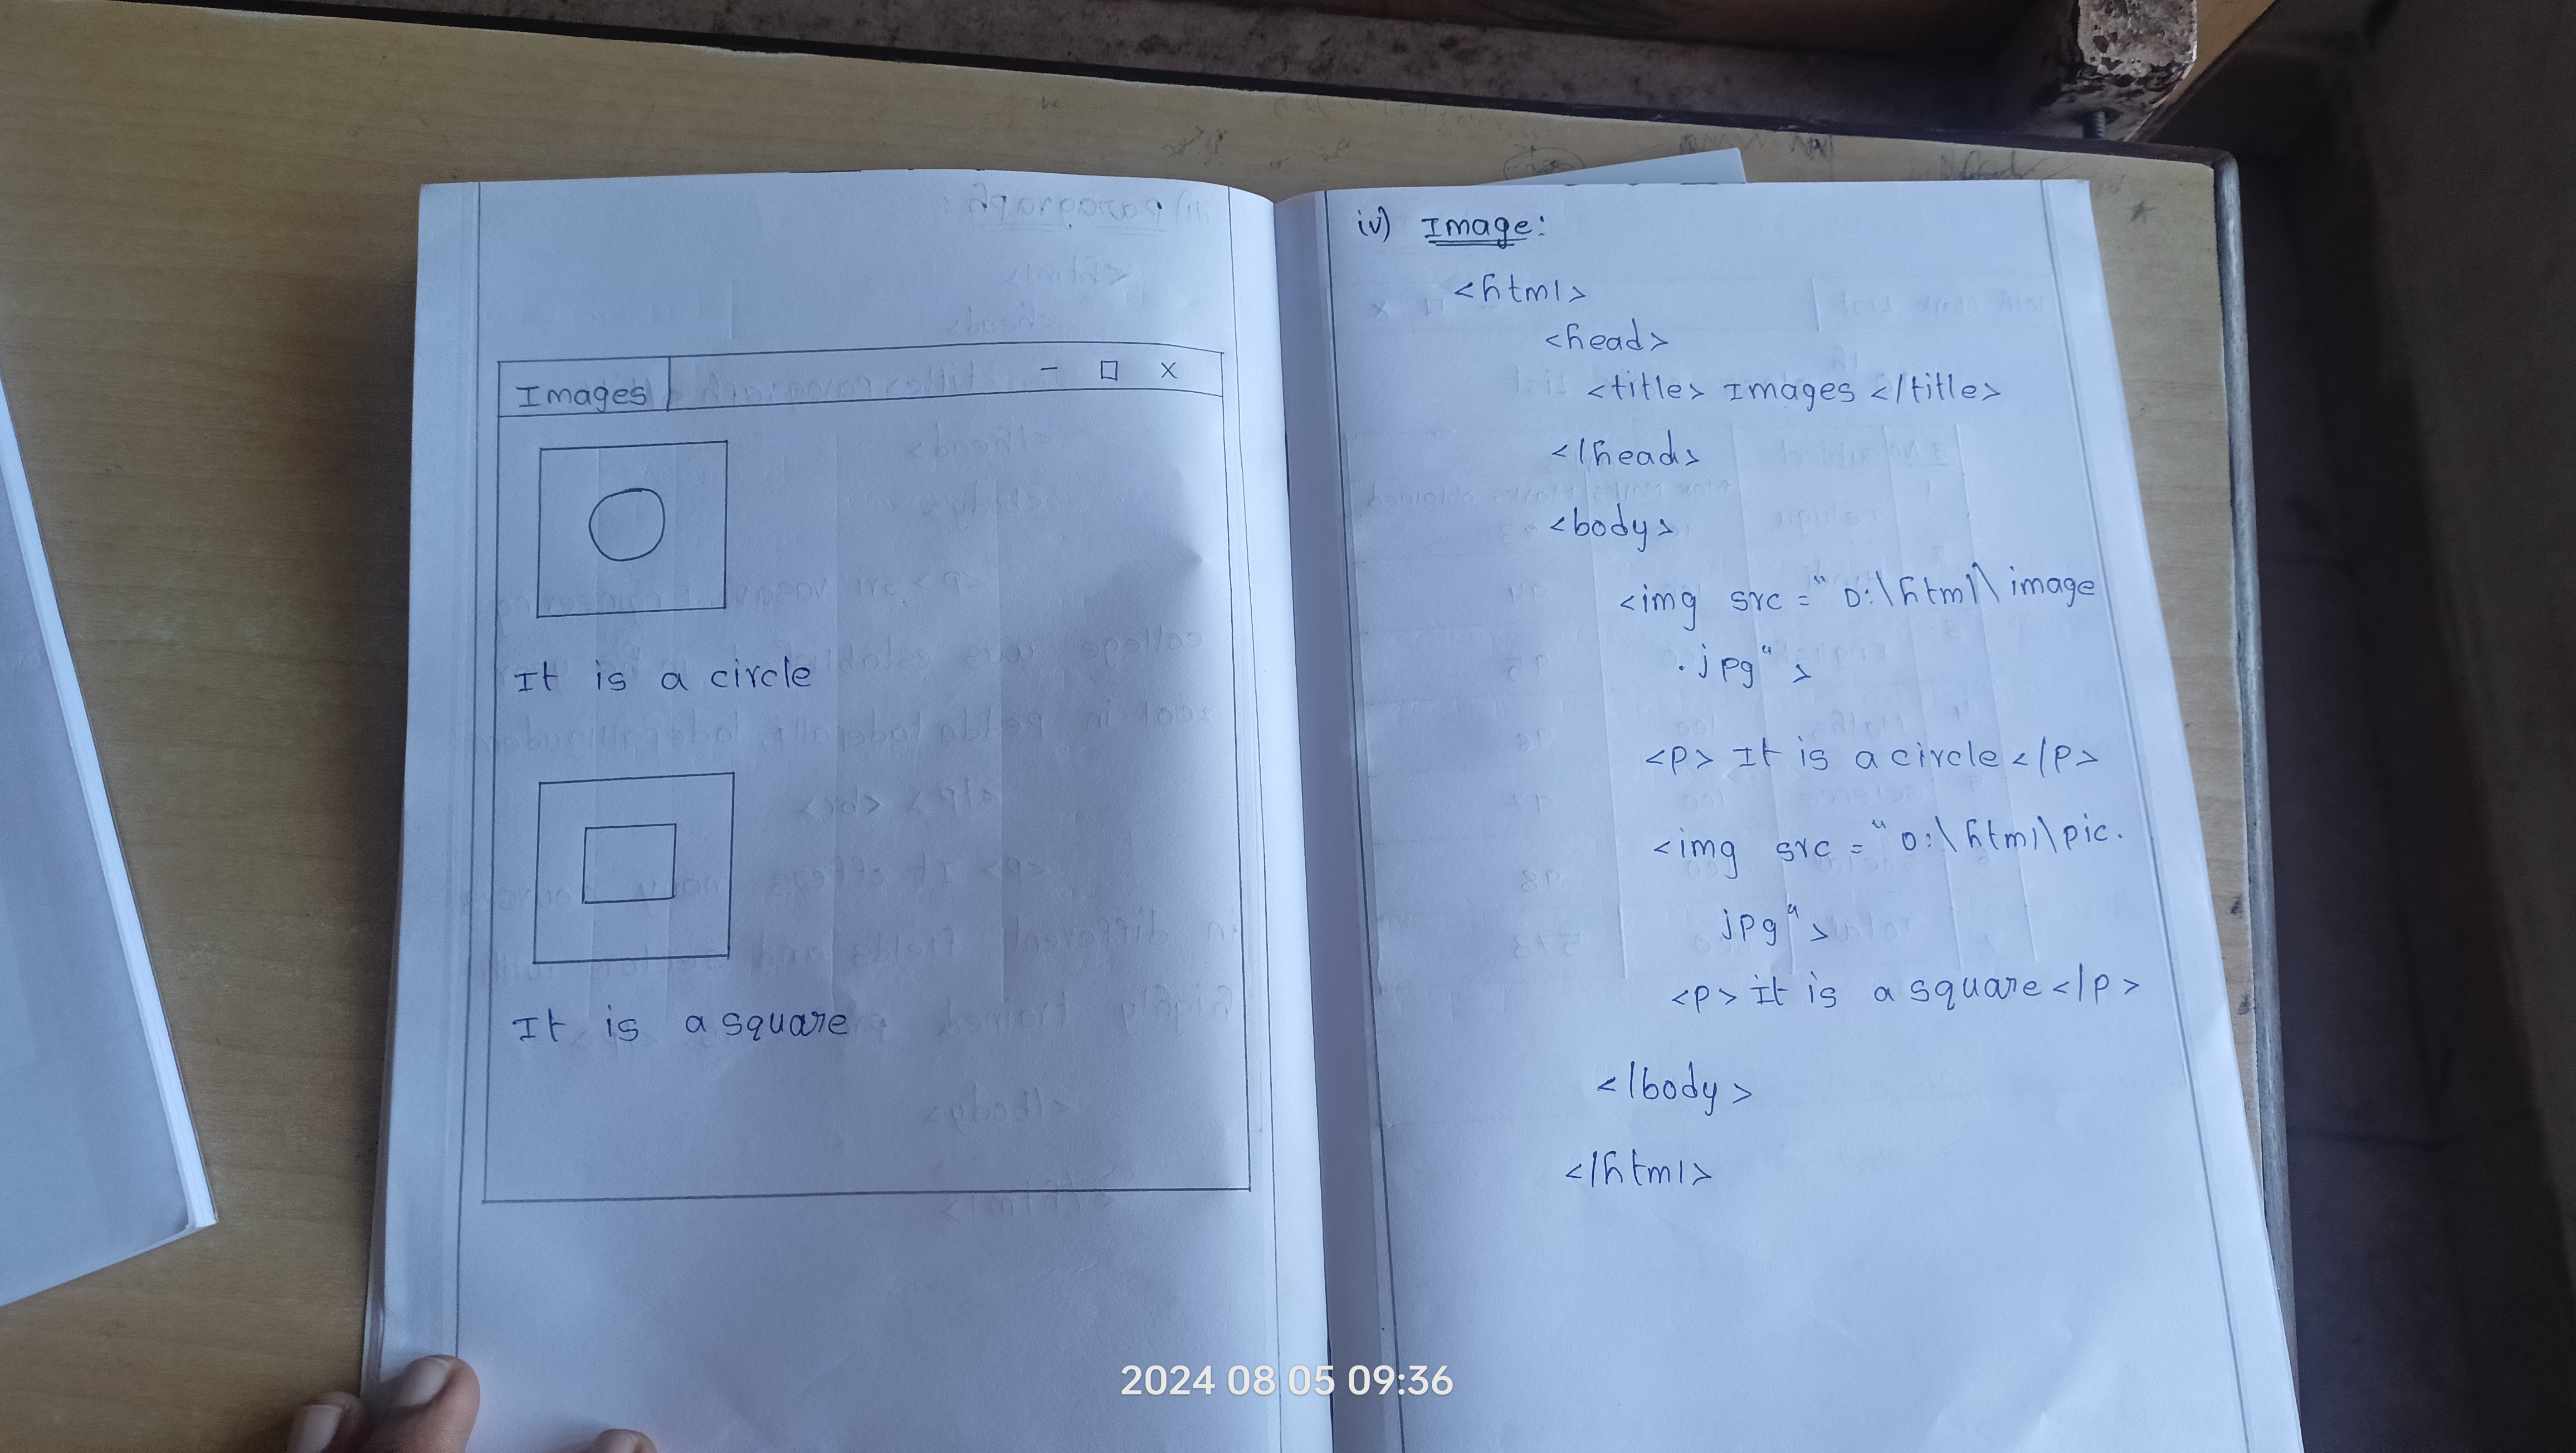 Images - □ x
It is a circle
It is a square
iv) Image:
<html>
<head>
<title> Images </title>
</head>
<body>
<img src = "D:\html\image
.jpg">
<p> It is a circle </p>
<img src = "D:\html\pic.
jpg">
<p> It is a square </p>
</body>
</html>
2024 08 05 09:36